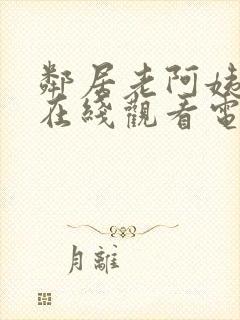 鄰居老阿姨
在綫觀看電
月離